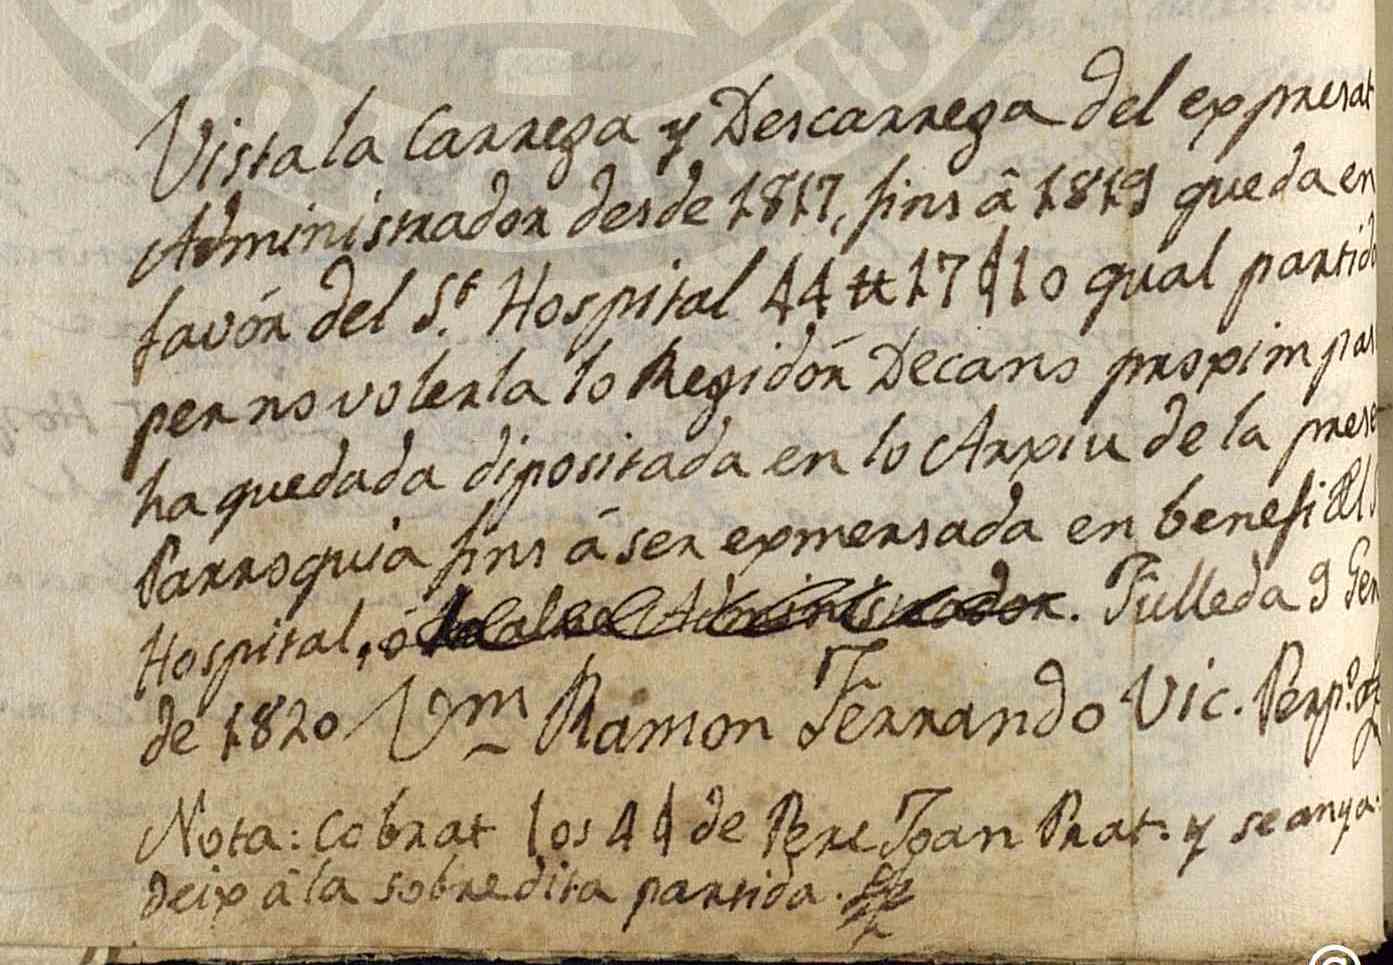 Vista la Carrega y Descarrega del expresat
Administrador desde 1817, fins â 1819 queda en
favór del St. Hospital 44 tt 17 ſ 10 qual partida
per no volerla lo Regidór Decano proxim pas
ha quedada dipositada en lo Arxiu de la prese
Parroquia fins á ser esmersada en benefi del
Hospital, ó Administrador. Fulleda 9 Gen
de 1820 Vm Ramon Ferrando Vic. Perp.º
Nota: Cobrat los 4 ſ de Pere Joan Prat. y se anya
deix â la sobredita partida.